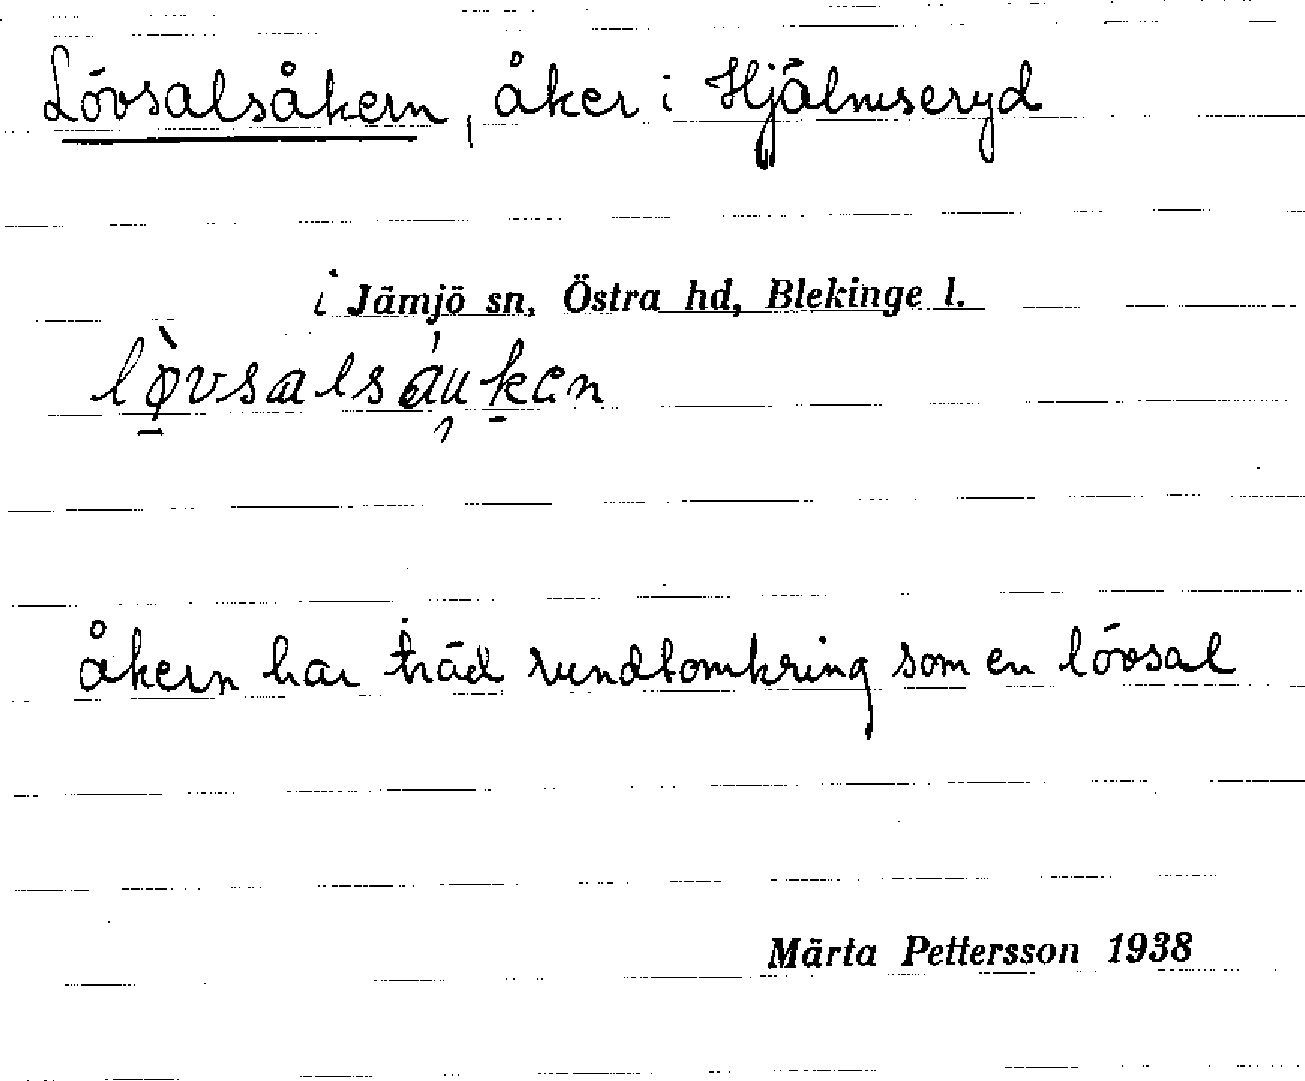 Lövsalsåkern, åker i Hjälmseryd
i Jämjö sn, Östra hd, Blekinge l.
åkern har träd rundtomkring som en lövsal
Märta Pettersson 1938